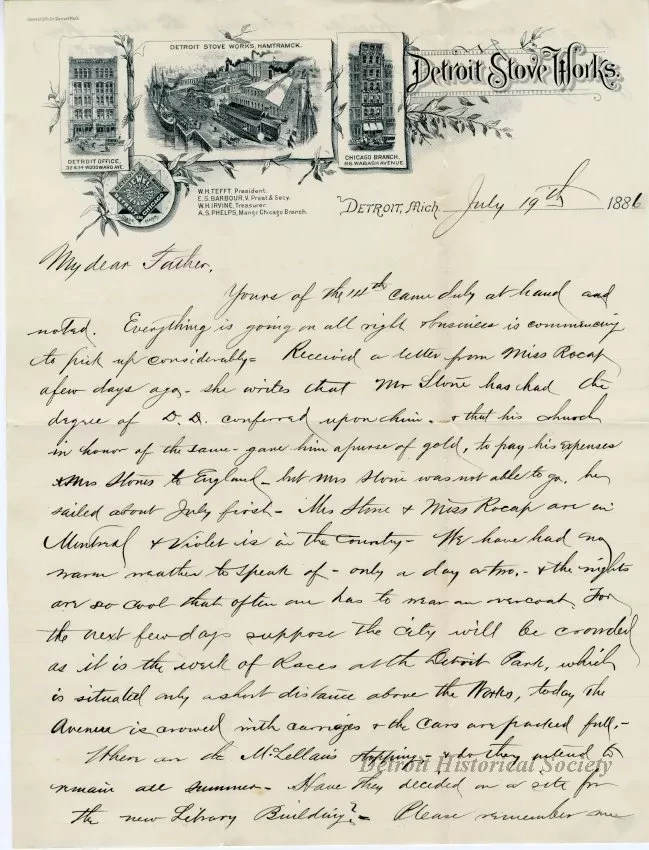 DETROIT STOVE WORKS, HAMTRAMCK.
Detroit Stove Works.
DETROIT OFFICE,
32 & 34 WOODWARD AVE.
CHICAGO BRANCH,
86 WABASH AVENUE
W.H. TEFFT, President.
E.S. BARBOUR, V. Prest & Secy.
W.H. IRVINE, Treasurer.
A.S. PHELPS, Mangr Chicago Branch.
DETROIT, Mich. July 19th 1886
My dear Father,
Yours of the 14th came duly at hand and
noted. Everything is going on all right & business is commencing
to pick up considerably = Received a letter from Miss Rocap
a few days ago - she writes that Mr Stone has had the
degree of D.D. conferred upon him. & that his church
in honor of the same - gave him a purse of gold, to pay his expenses
& Mrs Stones to England - but Mrs Stone was not able to go, he
sailed about July first - Mrs Stone & Miss Rocap are in
Montreal & Violet is in the Country - We have had no
warm weather to speak of - only a day or two. - & the nights
are so cool that often one has to wear an overcoat. For
the next few days suppose the city will be crowded
as it is the week of Races at the Detroit Park, which
is situated only a short distance above the Works, today the
Avenue is crowed with carriages & the cars are packed full. -
Where are the McLellans stopping - & do they intend to
remain all summer - Have they decided on a site for
the new Library Building? - Please remember me
Detroit Historical Society